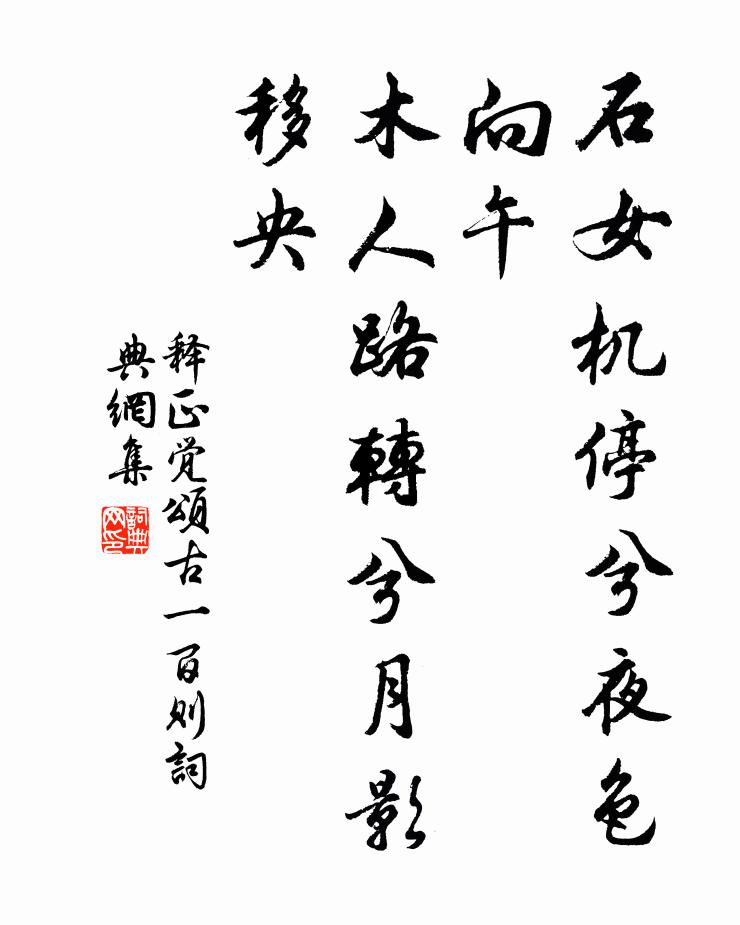 石女机停兮夜色
向午
木人路轉兮月影
移央
释正觉頌古一百则詞
典網集
詞典
网印